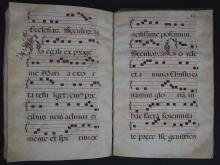 Ecclesiam. Seculorum.
egali ex proge
nie Maria exor
ta reful get cuius pre
cibus nos adiuva ri
mente et spiritu
potissime poscimus.
et u no Christo ca
namus glo ria m
hac sacra solemnita
te prece lse genitricis